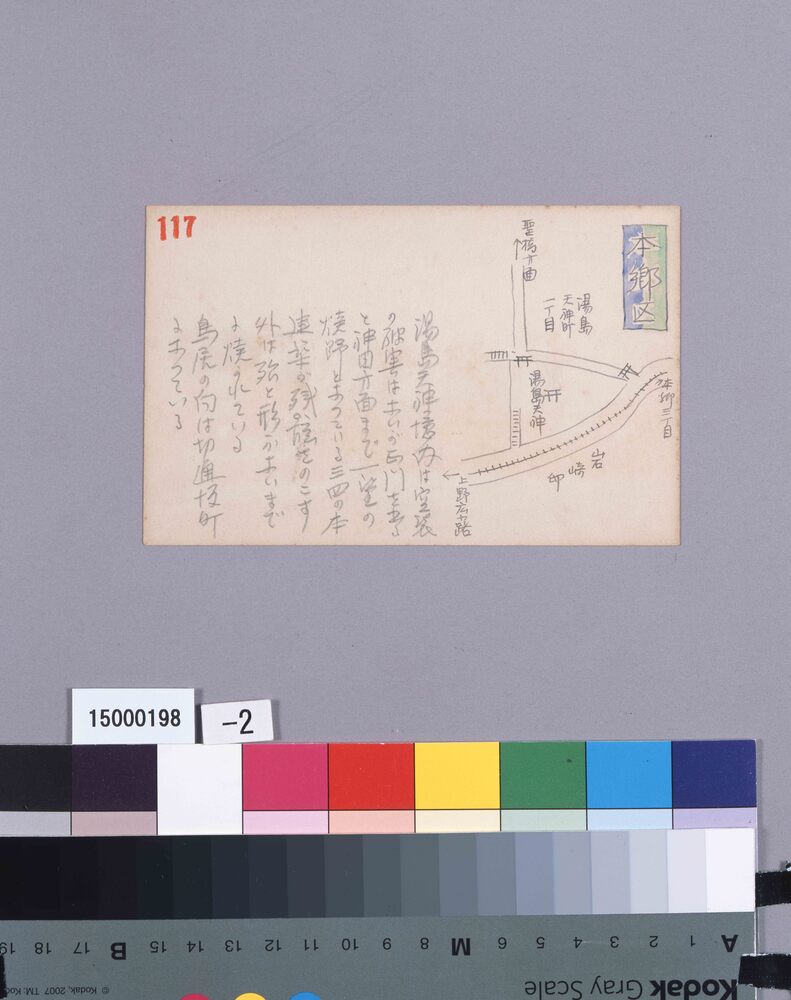 117
本郷区
湯島
天神町
一丁目
聖橋方面
湯島天神
本郷三丁目
岩崎邸
上野広小路
湯島天神境内は空襲
の被害はないが正門を出る
と神田方面まで一望の
焼野となっている三四の本
建築が残骸をのこす
外は殆と形がないまで
に焼かれている
鳥居の向は切通坂町
になっている
15000198
-2
Kodak Gray Scale
A 1 2 3 4 5 6 M 8 9 10 11 12 13 14 15 B 17 18 19
© Kodak, 2007 TM: Kodak